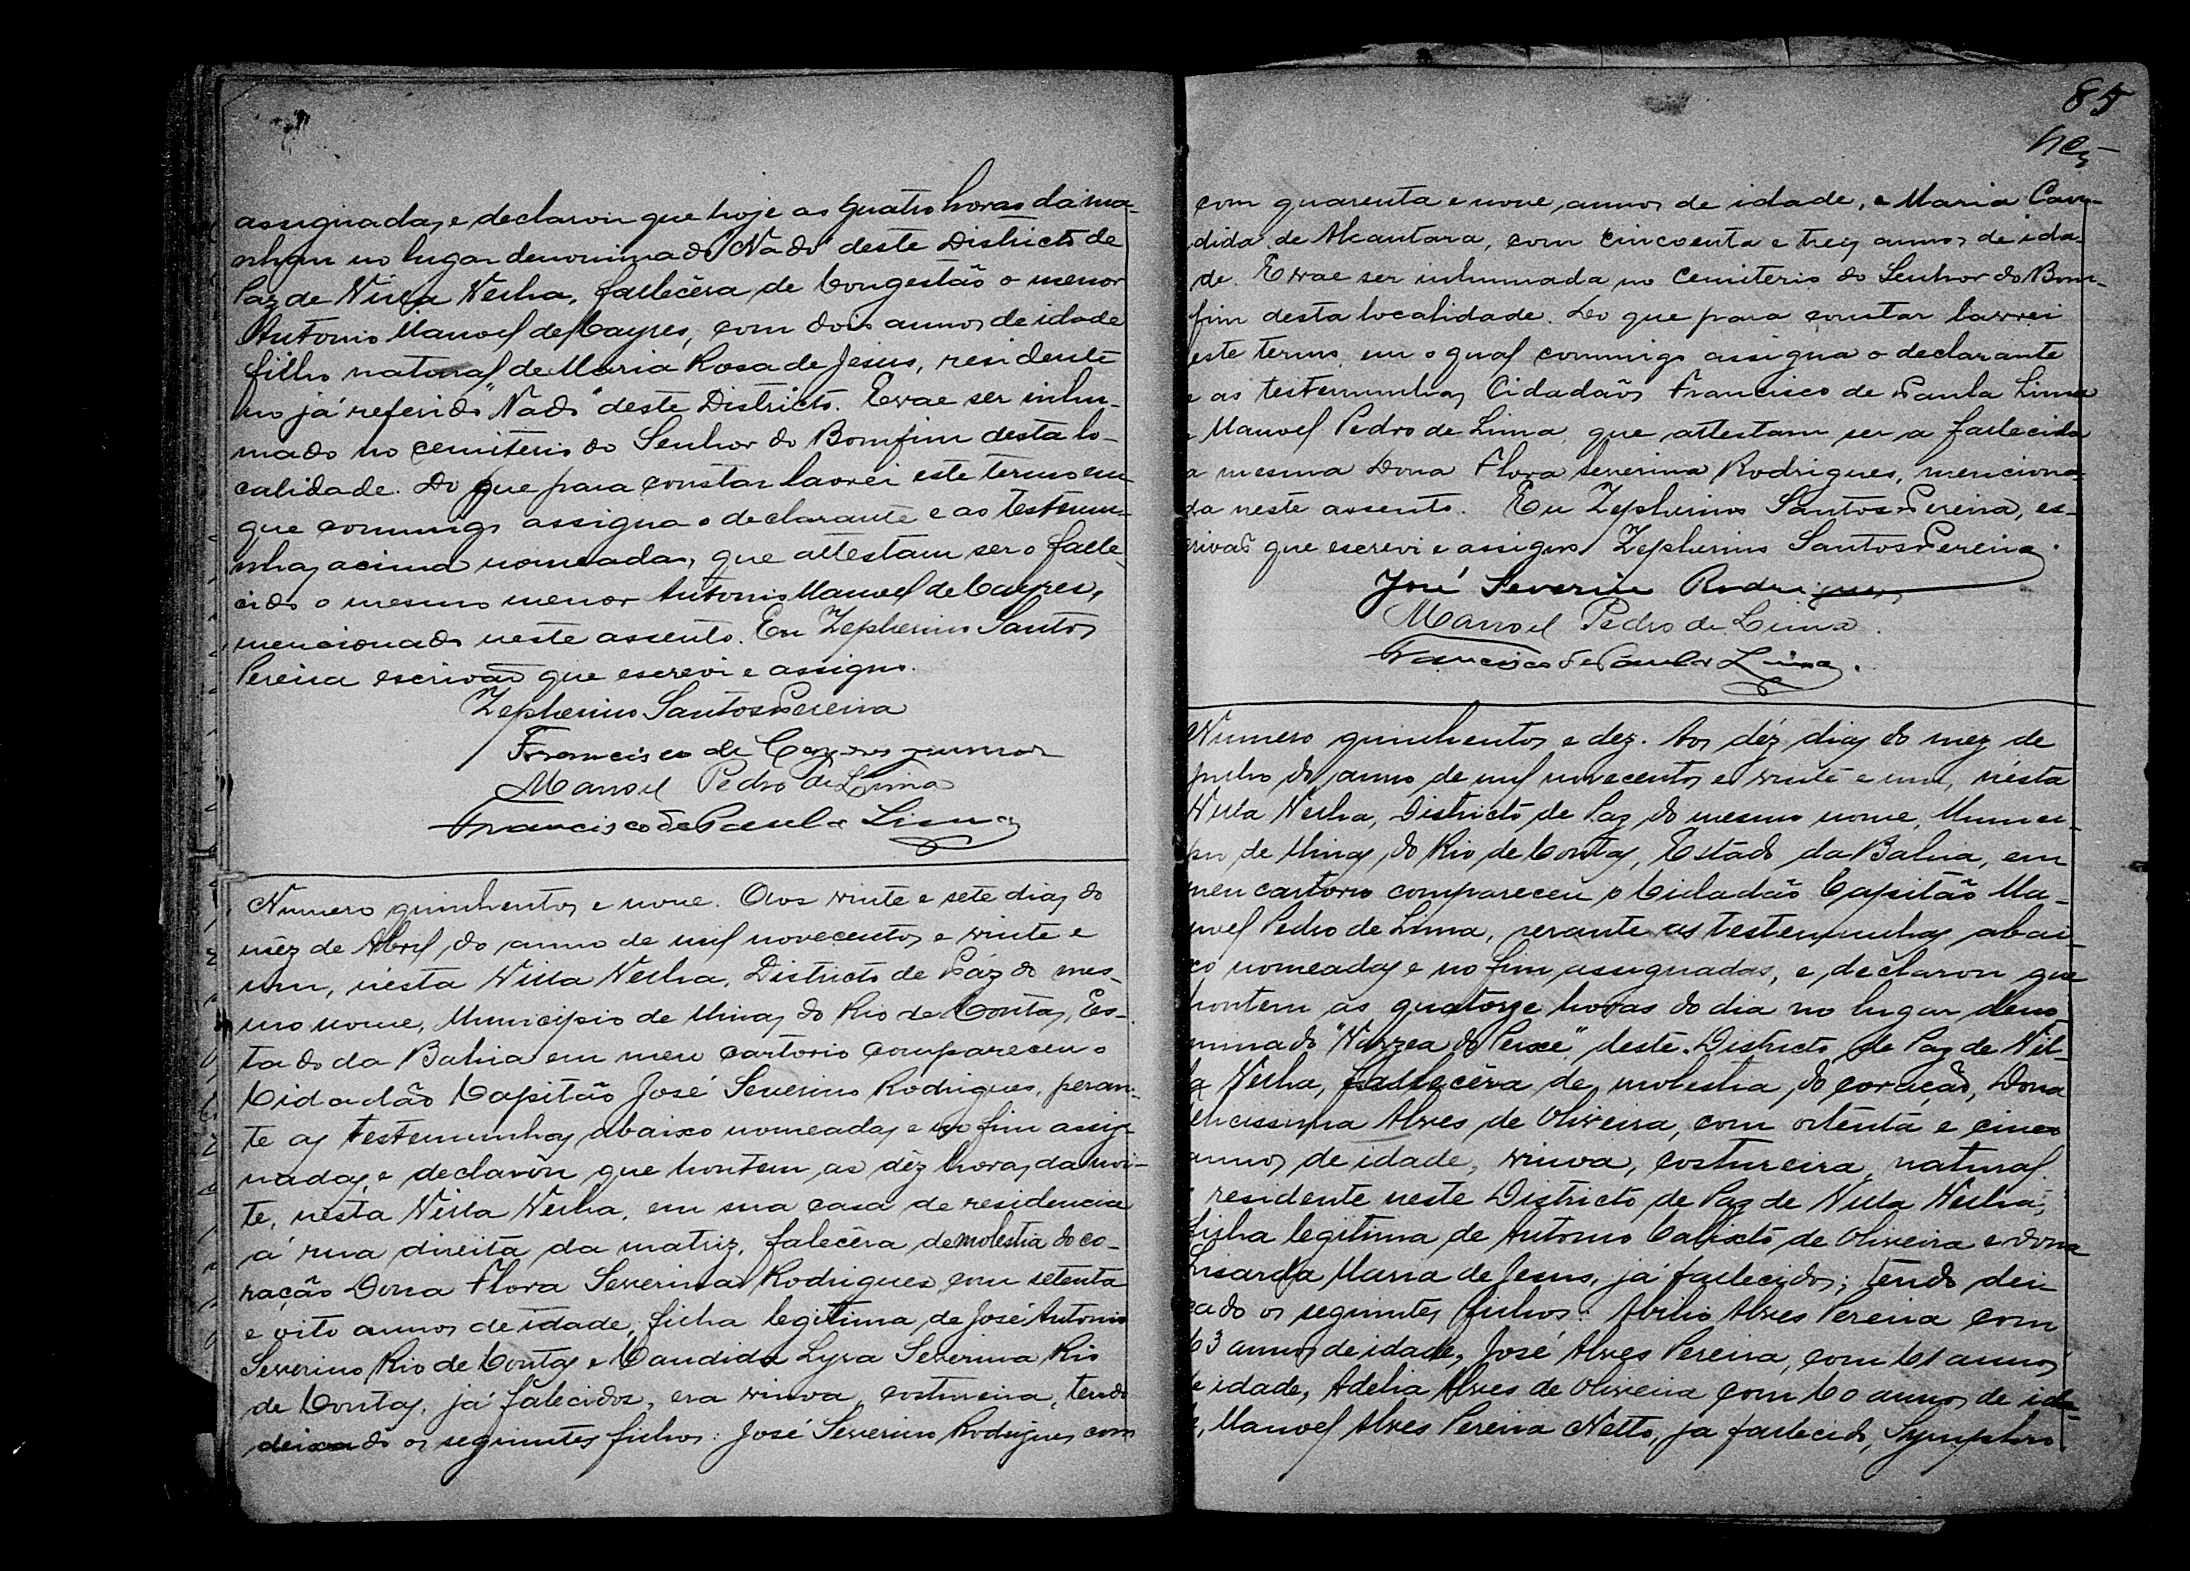 assignadas, e declarou que hoje as quatro horas da ma-
nham no lugar denominado "Nado" deste Districto de
Paz de Villa Velha, fallecêra de Congestão o menor
Antonio Manoel de Cayres, com dois annos de idade
filho natural de Maria Rosa de Jesus, residente
no já referido "Nado" deste Districto. E vae ser inhu-
mado no cemiterio do Senhor do Bomfim desta lo-
calidade. Do que para constar lavrei este termo em
que commigo assigna o declarante e as testemu-
nhas acima nomeadas, que attestam ser o falle-
cido o mesmo menor Antonio Manoel de Cayres,
mencionado neste assento. Eu Zepherino Santos
Pereira escrivão que escrevi e assigno.
Zepherino Santos Pereira
Francisco de Cayres Junior
Manoel Pedro de Lima
Francisco de Paula Lima
Numero quinhentos e nove. Aos vinte e sete dias do
mêz de Abril do anno de mil novecentos e vinte e
um, nésta Villa Velha, Districto de Páz do mes-
mo nome, Municipio de Minas do Rio de Contas, Es-
tado da Bahia em meu cartorio compareceu o
Cidadão Capitão José Severino Rodrigues, peran-
te as testemunhas abaixo nomeadas e no fim assig-
nadas, e declarou que hontem, as déz horas da noi-
te, nesta Villa Velha, em sua casa de residencia
á rua direita da matriz, falecêra de molestia do co-
ração Dona Flora Severina Rodrigues, com setenta
e oito annos de idade, filha legitima de José Antonio
Severino Rio de Contas e Candida Lyra Severina Rio
de Contas, já falecidos, era viuva, costureira, tendo
deixado os seguintes filhos: José Severino Rodrigues com
85
com quarenta e nove annos de idade, e Maria Can-
dida de Alcantara, com cincoenta e trez annos de ida-
de. E vae ser inhumada no Cemiterio do Senhor do Bom-
fim desta localidade. Do que para constar lavrei
este termo em o qual commigo assigna o declarante
e as testemunhas Cidadãos Francisco de Paula Lima
e Manoel Pedro de Lima, que attestam ser a fallecida
a mesma Dona Flora Severina Rodrigues, menciona-
da neste assento. Eu Zepherino Santos Pereira, es-
crivão que escrevi e assigno. Zepherino Santos Pereira.
José Severino Rodrigues
Manoel Pedro de Lima.
Francisco de Paula Lima.
Numero quinhentos e dez. Aos déz dias do mez de
julho do anno de mil novecentos e vinte e um, nésta
Villa Velha, Districto de Paz do mesmo nome, Munici-
pio de Minas do Rio de Contas, Estado da Bahia, em
meu cartorio compareceu o Cidadão Capitão Ma-
noel Pedro de Lima, perante as testemunhas abai-
xo nomeadas e no fim assignadas, e declarou que
hontem ás quatorze horas do dia no lugar deno-
minado "Varzea do Peixe" deste Districto de Paz de Vil-
la Velha, fallecêra de molestia do coração, Dona
Felicissima Alves de Oliveira, com oitenta e cinco
annos de idade, viuva, costureira, natural
e residente neste Districto de Paz de Villa Velha,
filha legitima de Antonio Calixto de Oliveira e dona
Lisarda Maria de Jesus, já fallecidos; tendo dei-
xado os seguintes filhos: Abilio Alves Pereira com
63 annos de idade, José Alves Pereira, com 61 annos
de idade, Adelia Alves de Oliveira com 60 annos de ida-
de, Manoel Alves Pereira Netto, ja fallecido, Symphro